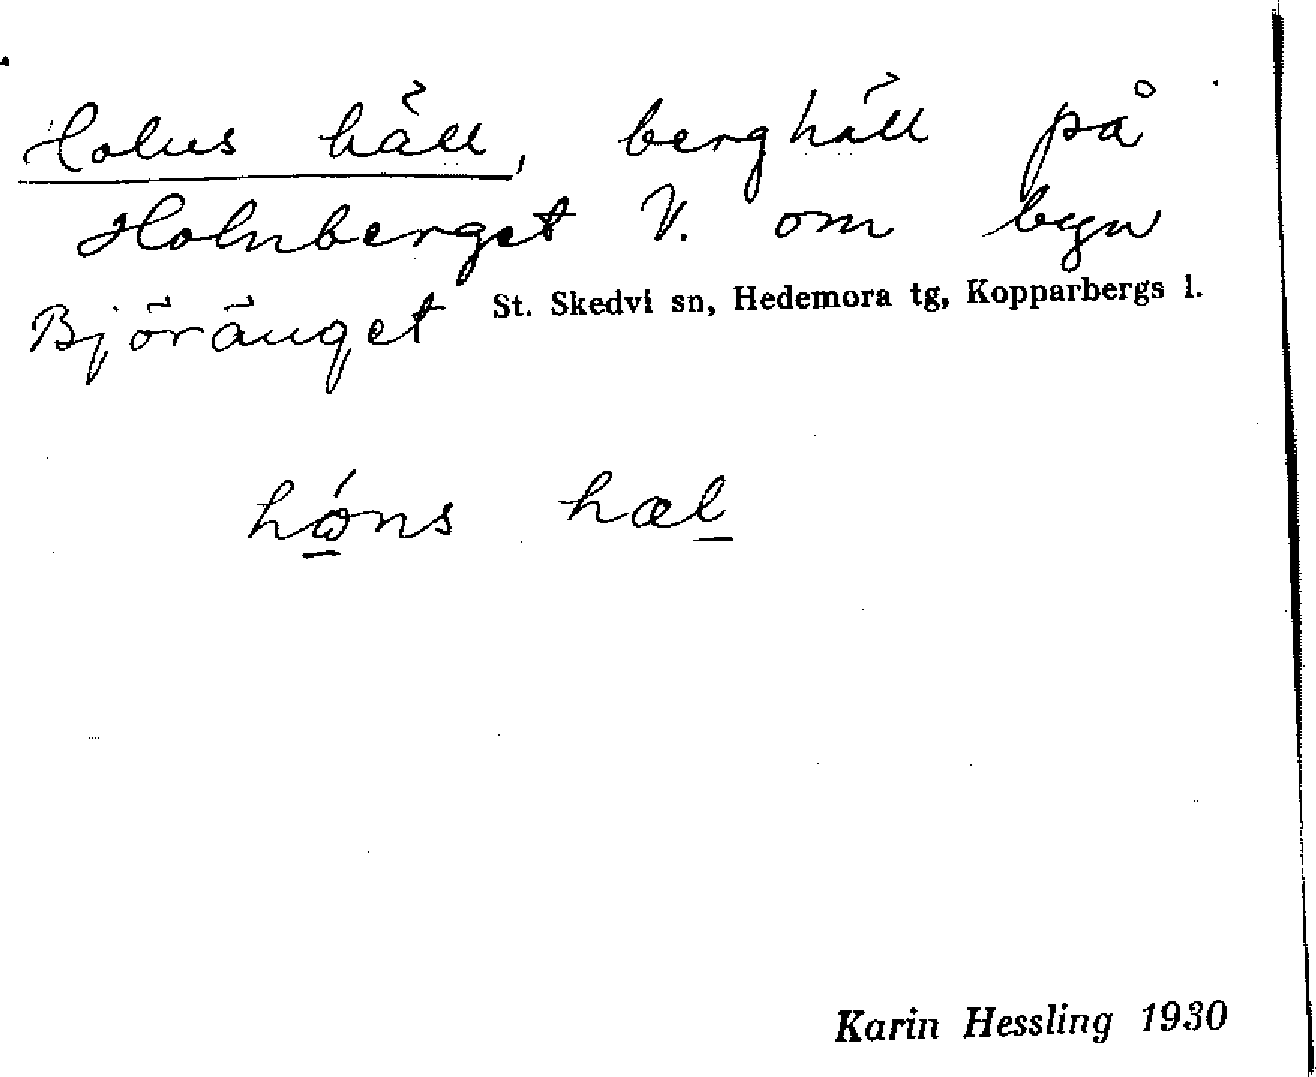 Holns häll, berghäll på
Holnberget V. om byn
Björänget St. Skedvi sn, Hedemora tg, Kopparbergs l.
hó̱ns hæl̲
Karin Hessling 1930